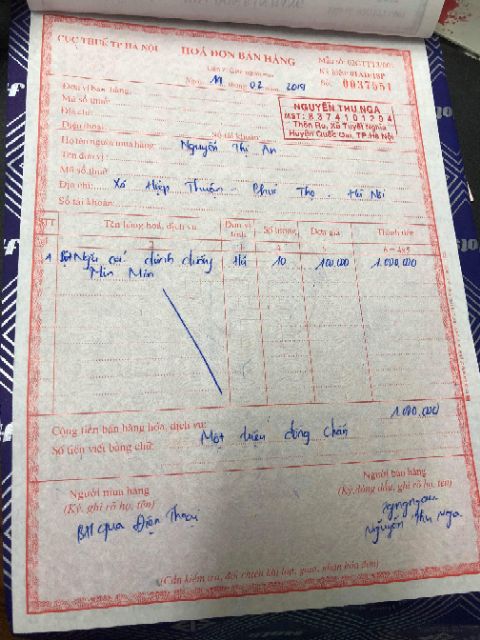 CỤC THUẾ TP HÀ NỘI
HOÁ ĐƠN BÁN HÀNG
Mẫu số: 02GTTT3/001
Liên 2: Giao người mua
Ký hiệu: 01AD/18P
Ngày 11 tháng 02 2019
Số: 0037551
Đơn vị bán hàng:
Mã số thuế:
Địa chỉ:
Điện thoại: Số tài khoản:
NGUYỄN THU NGA
MST: 8374101204
Thôn Ro, Xã Tuyết Nghĩa
Huyện Quốc Oai, TP.Hà Nội
Họ tên người mua hàng: Nguyễn Thị An
Tên đơn vị:
Mã số thuế:
Địa chỉ: Xã Hiệp Thuận - Phúc Thọ - Hà Nội
Số tài khoản:
STT Tên hàng hoá, dịch vụ Đơn vị tính Số lượng Đơn giá Thành tiền
4 6=4x5
1 Bột Ngũ cốc dinh dưỡng Hũ 10 100,000 1.000,000
Min Min
Cộng tiền bán hàng hóa, dịch vụ: 1.000,000
Số tiền viết bằng chữ: Một triệu đồng chẵn
Người mua hàng Người bán hàng
(Ký, ghi rõ họ, tên) (Ký, đóng dấu, ghi rõ họ, tên)
BH qua Điện Thoại
Nguyễn Thu Nga
(Cần kiểm tra, đối chiếu khi lập, giao, nhận hóa đơn)